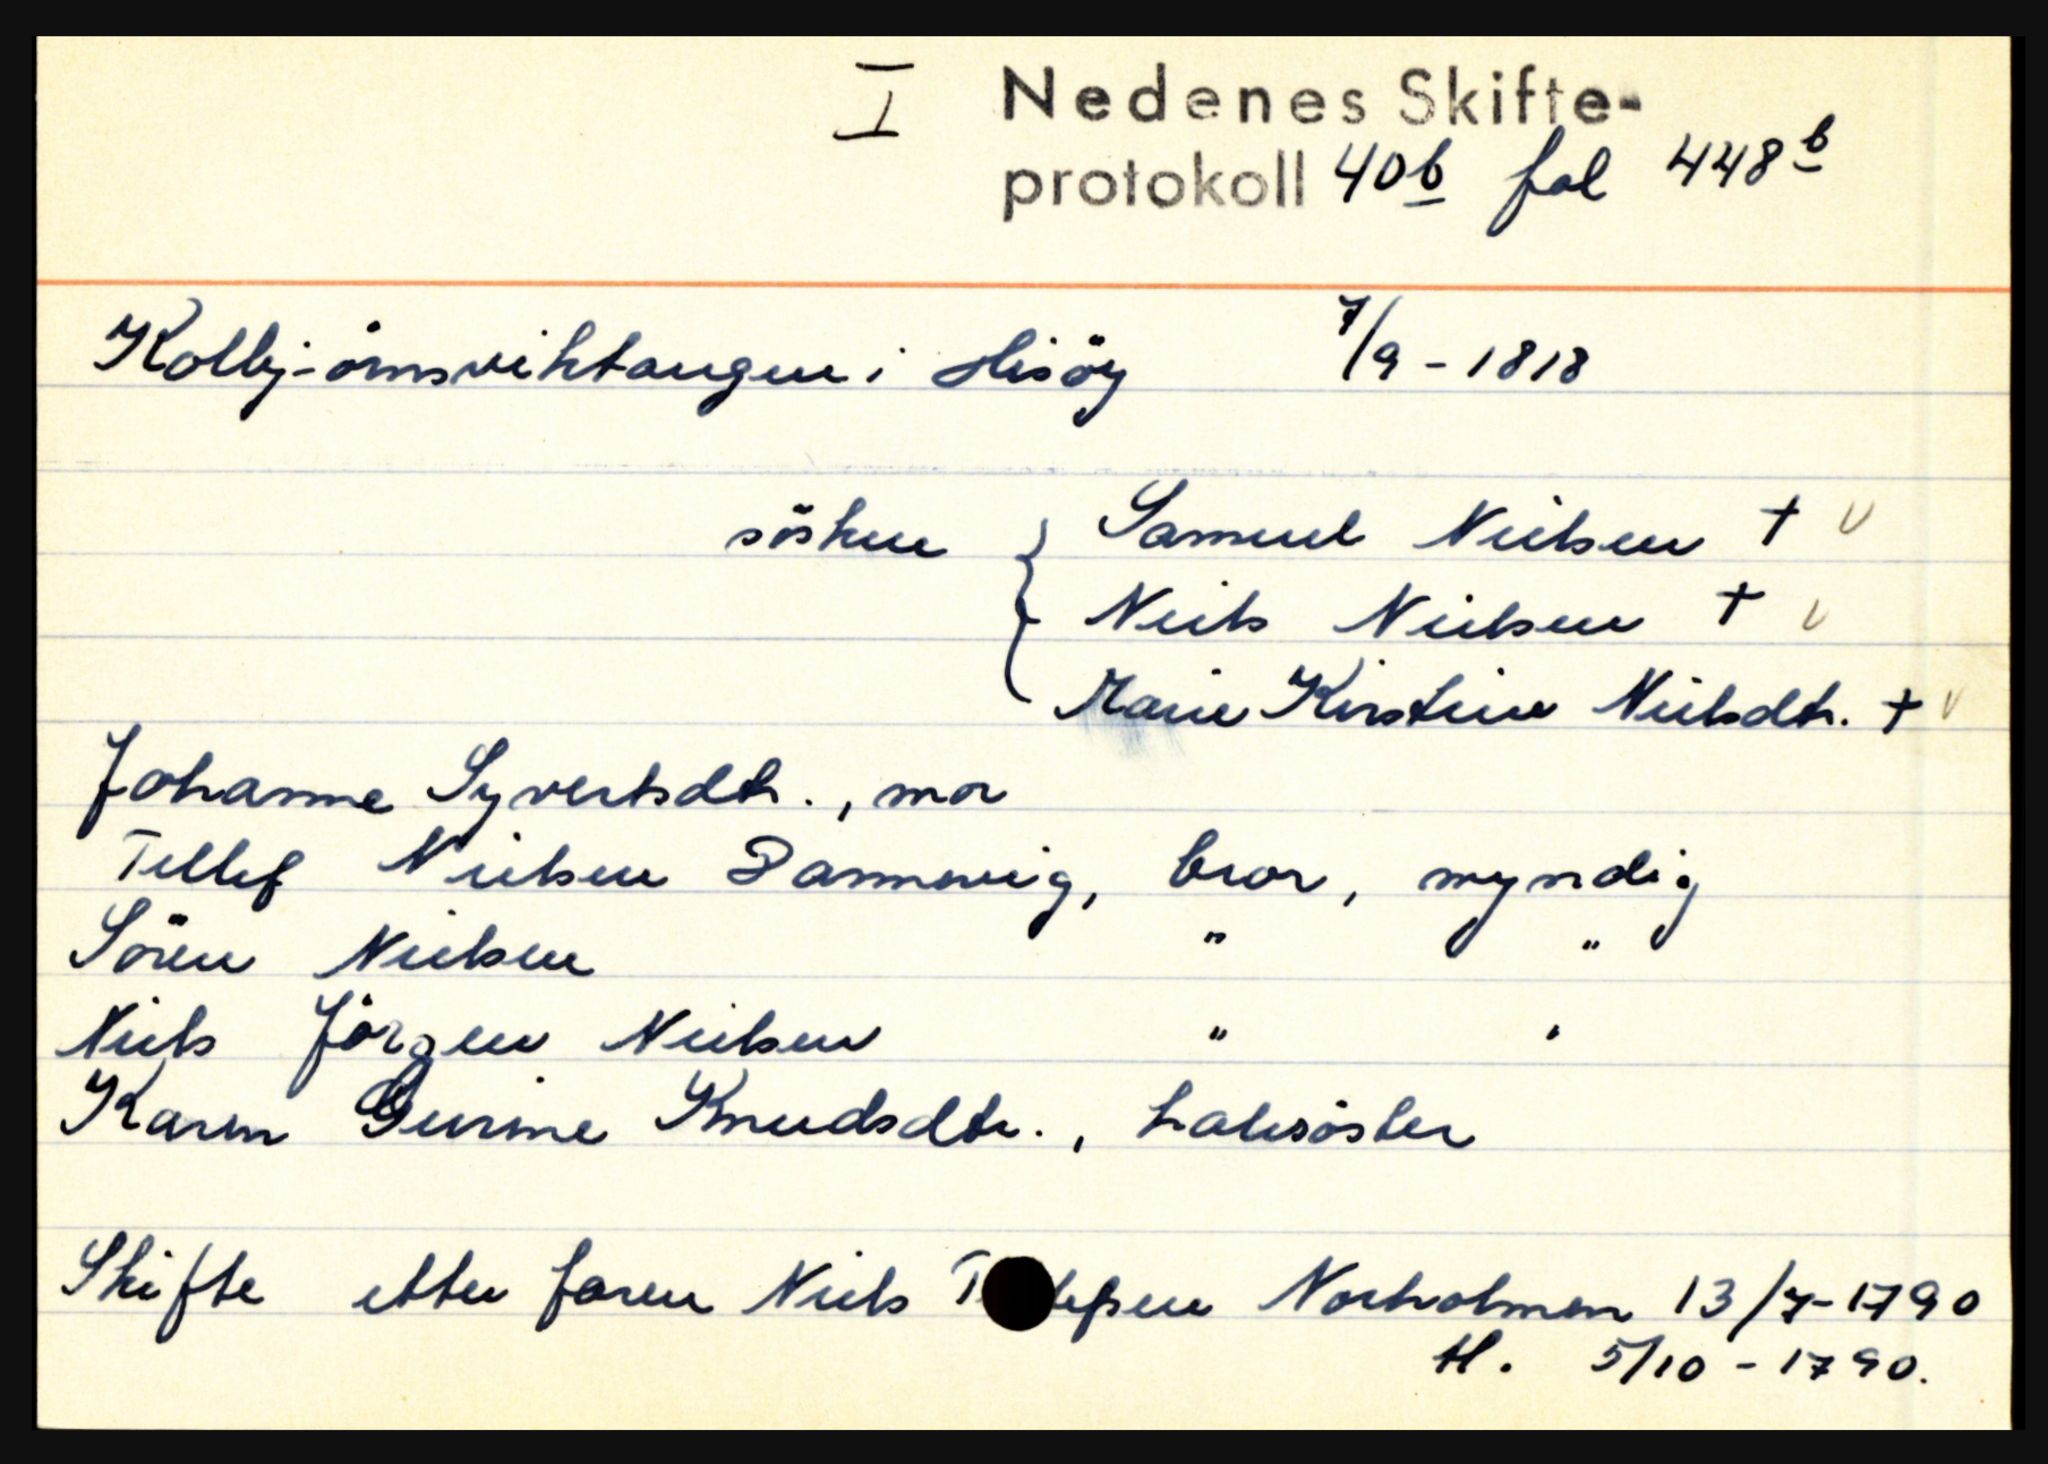 I Nedenes Skifte-
protokoll 40b fol 448b
Kolbjörnsviktangen i Hisöy 7/9 - 1818
sösken { Samuel Nielsen † v
Niels Nielsen † v
Marie Kirstine Nielsdtr. † v
Johanne Syvertsdtr., mor
Tellef Nielsen Dannevig, bror, myndig
Sören Nielsen " "
Niels Jörgen Nielsen " "
Karen Gurine Knudsdtr., halvsöster
Skifte etter faren Niels Norholmen 13/7-1790
H. 5/10 - 1790.